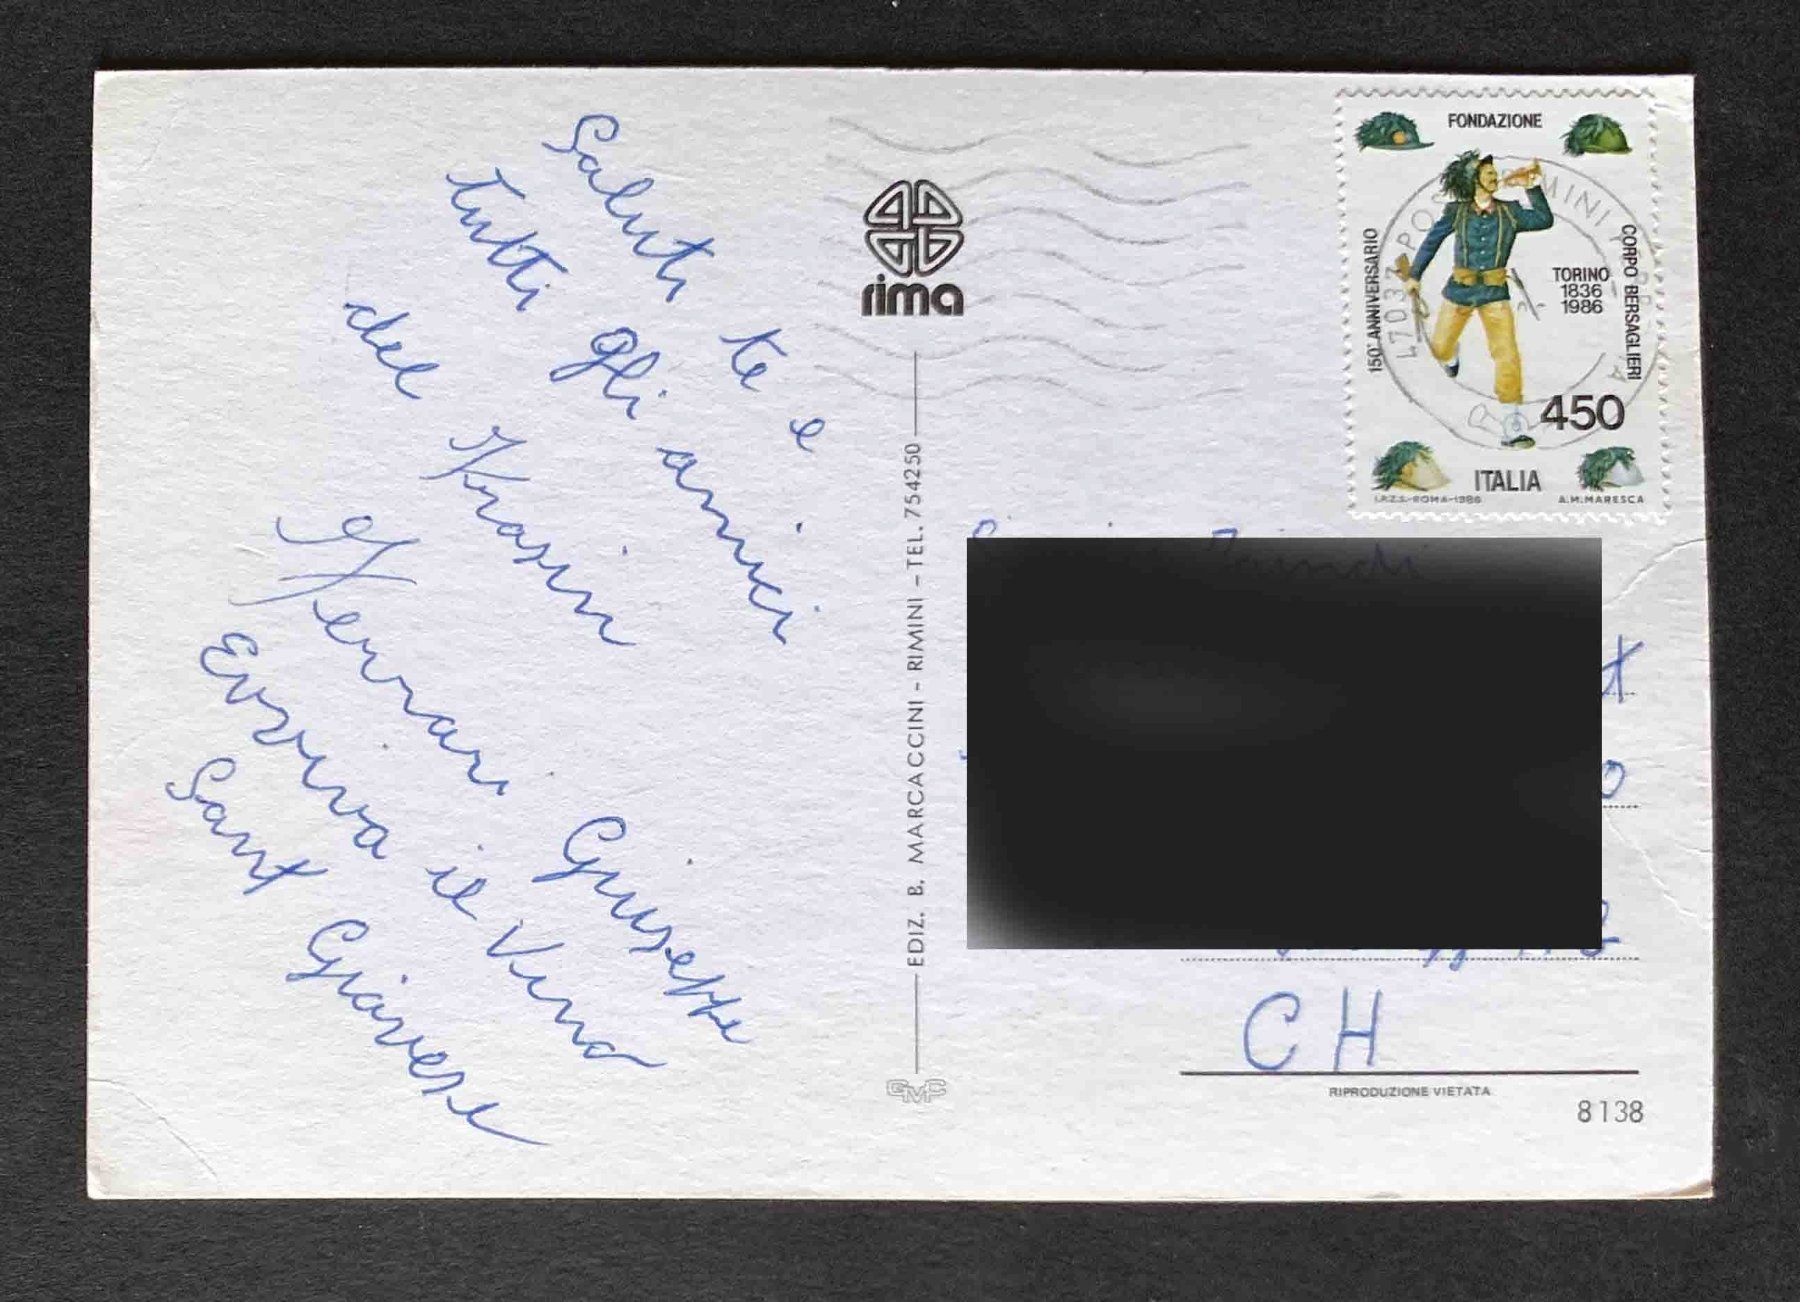 Saluti te e
tutti gli amici
del
Ferrari Giuseppe
Evviva il vino
Sant
rima
EDIZ. B. MARCACCINI - RIMINI - TEL. 754250
GMC
FONDAZIONE
150° ANNIVERSARIO
CORPO BERSAGLIERI
TORINO
1836
1986
450
ITALIA
I.P.Z.S.-ROMA-1986 A.M.MARESCA
47037 RIMINI
CH
RIPRODUZIONE VIETATA
8138